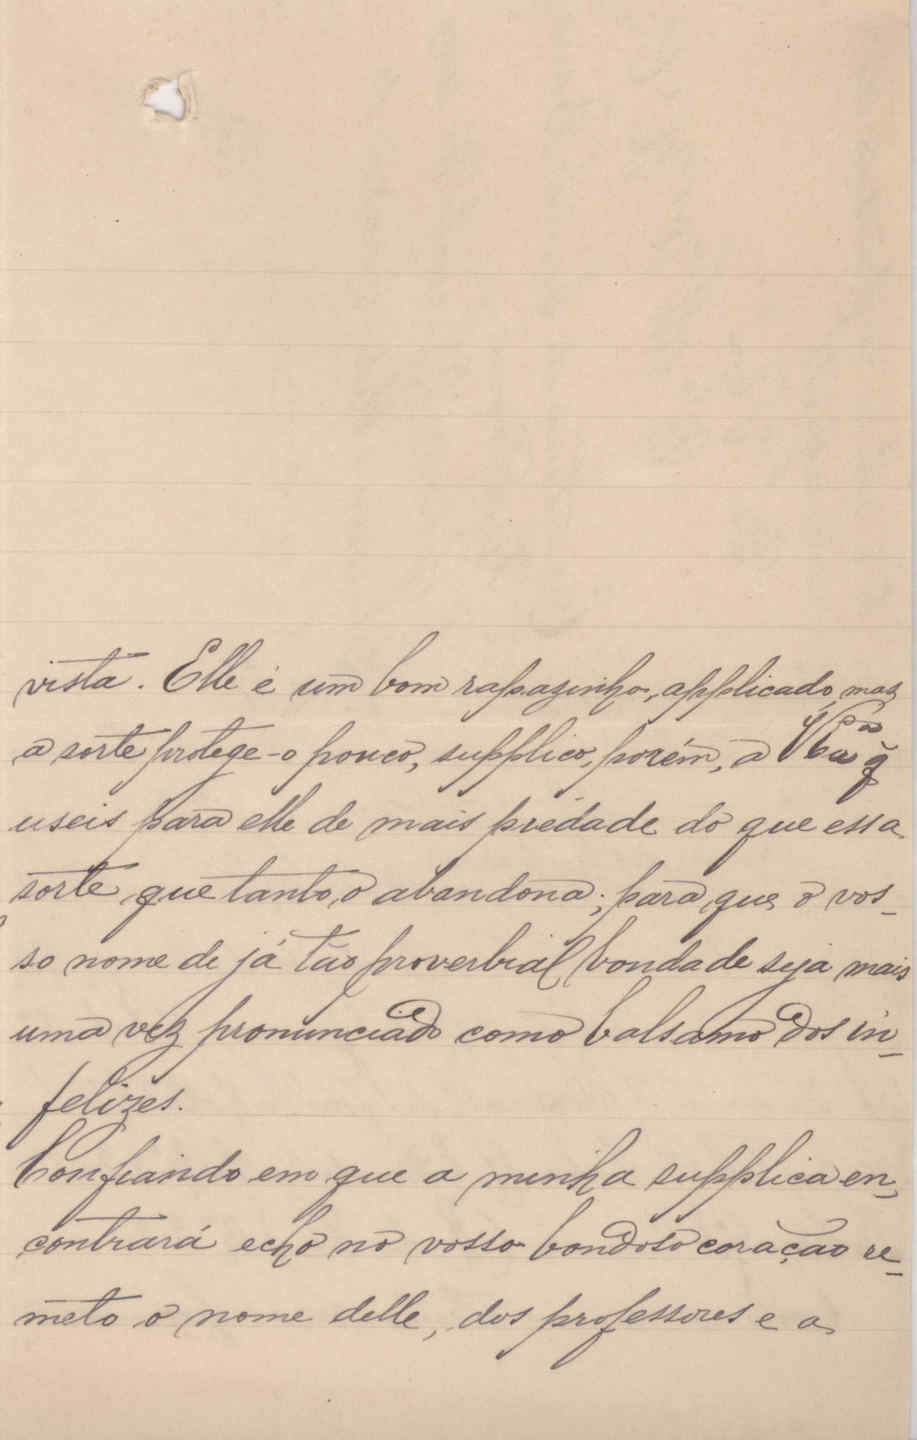 vista. Elle é um bom rapazinho, applicado, mas
a sorte protege-o pouco, supplico, porém, a V. Exa q̃
useis para elle de mais piedade do que essa
sorte que tanto o abandona; para que o vos-
so nome de já tão proverbial bondade seja mais
uma vez pronunciado como balsamo dos in-
felizes.
Confiando em que a minha supplica en-
contrará echo no vosso bondoso coração re-
meto o nome delle, dos professores e a